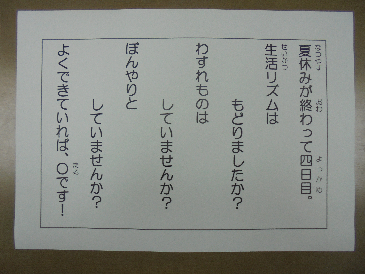 夏休みが終わって四日目。
生活リズムは
もどりましたか?
わすれものは
していませんか?
ぼんやりと
していませんか?
よくできていれば、○です!